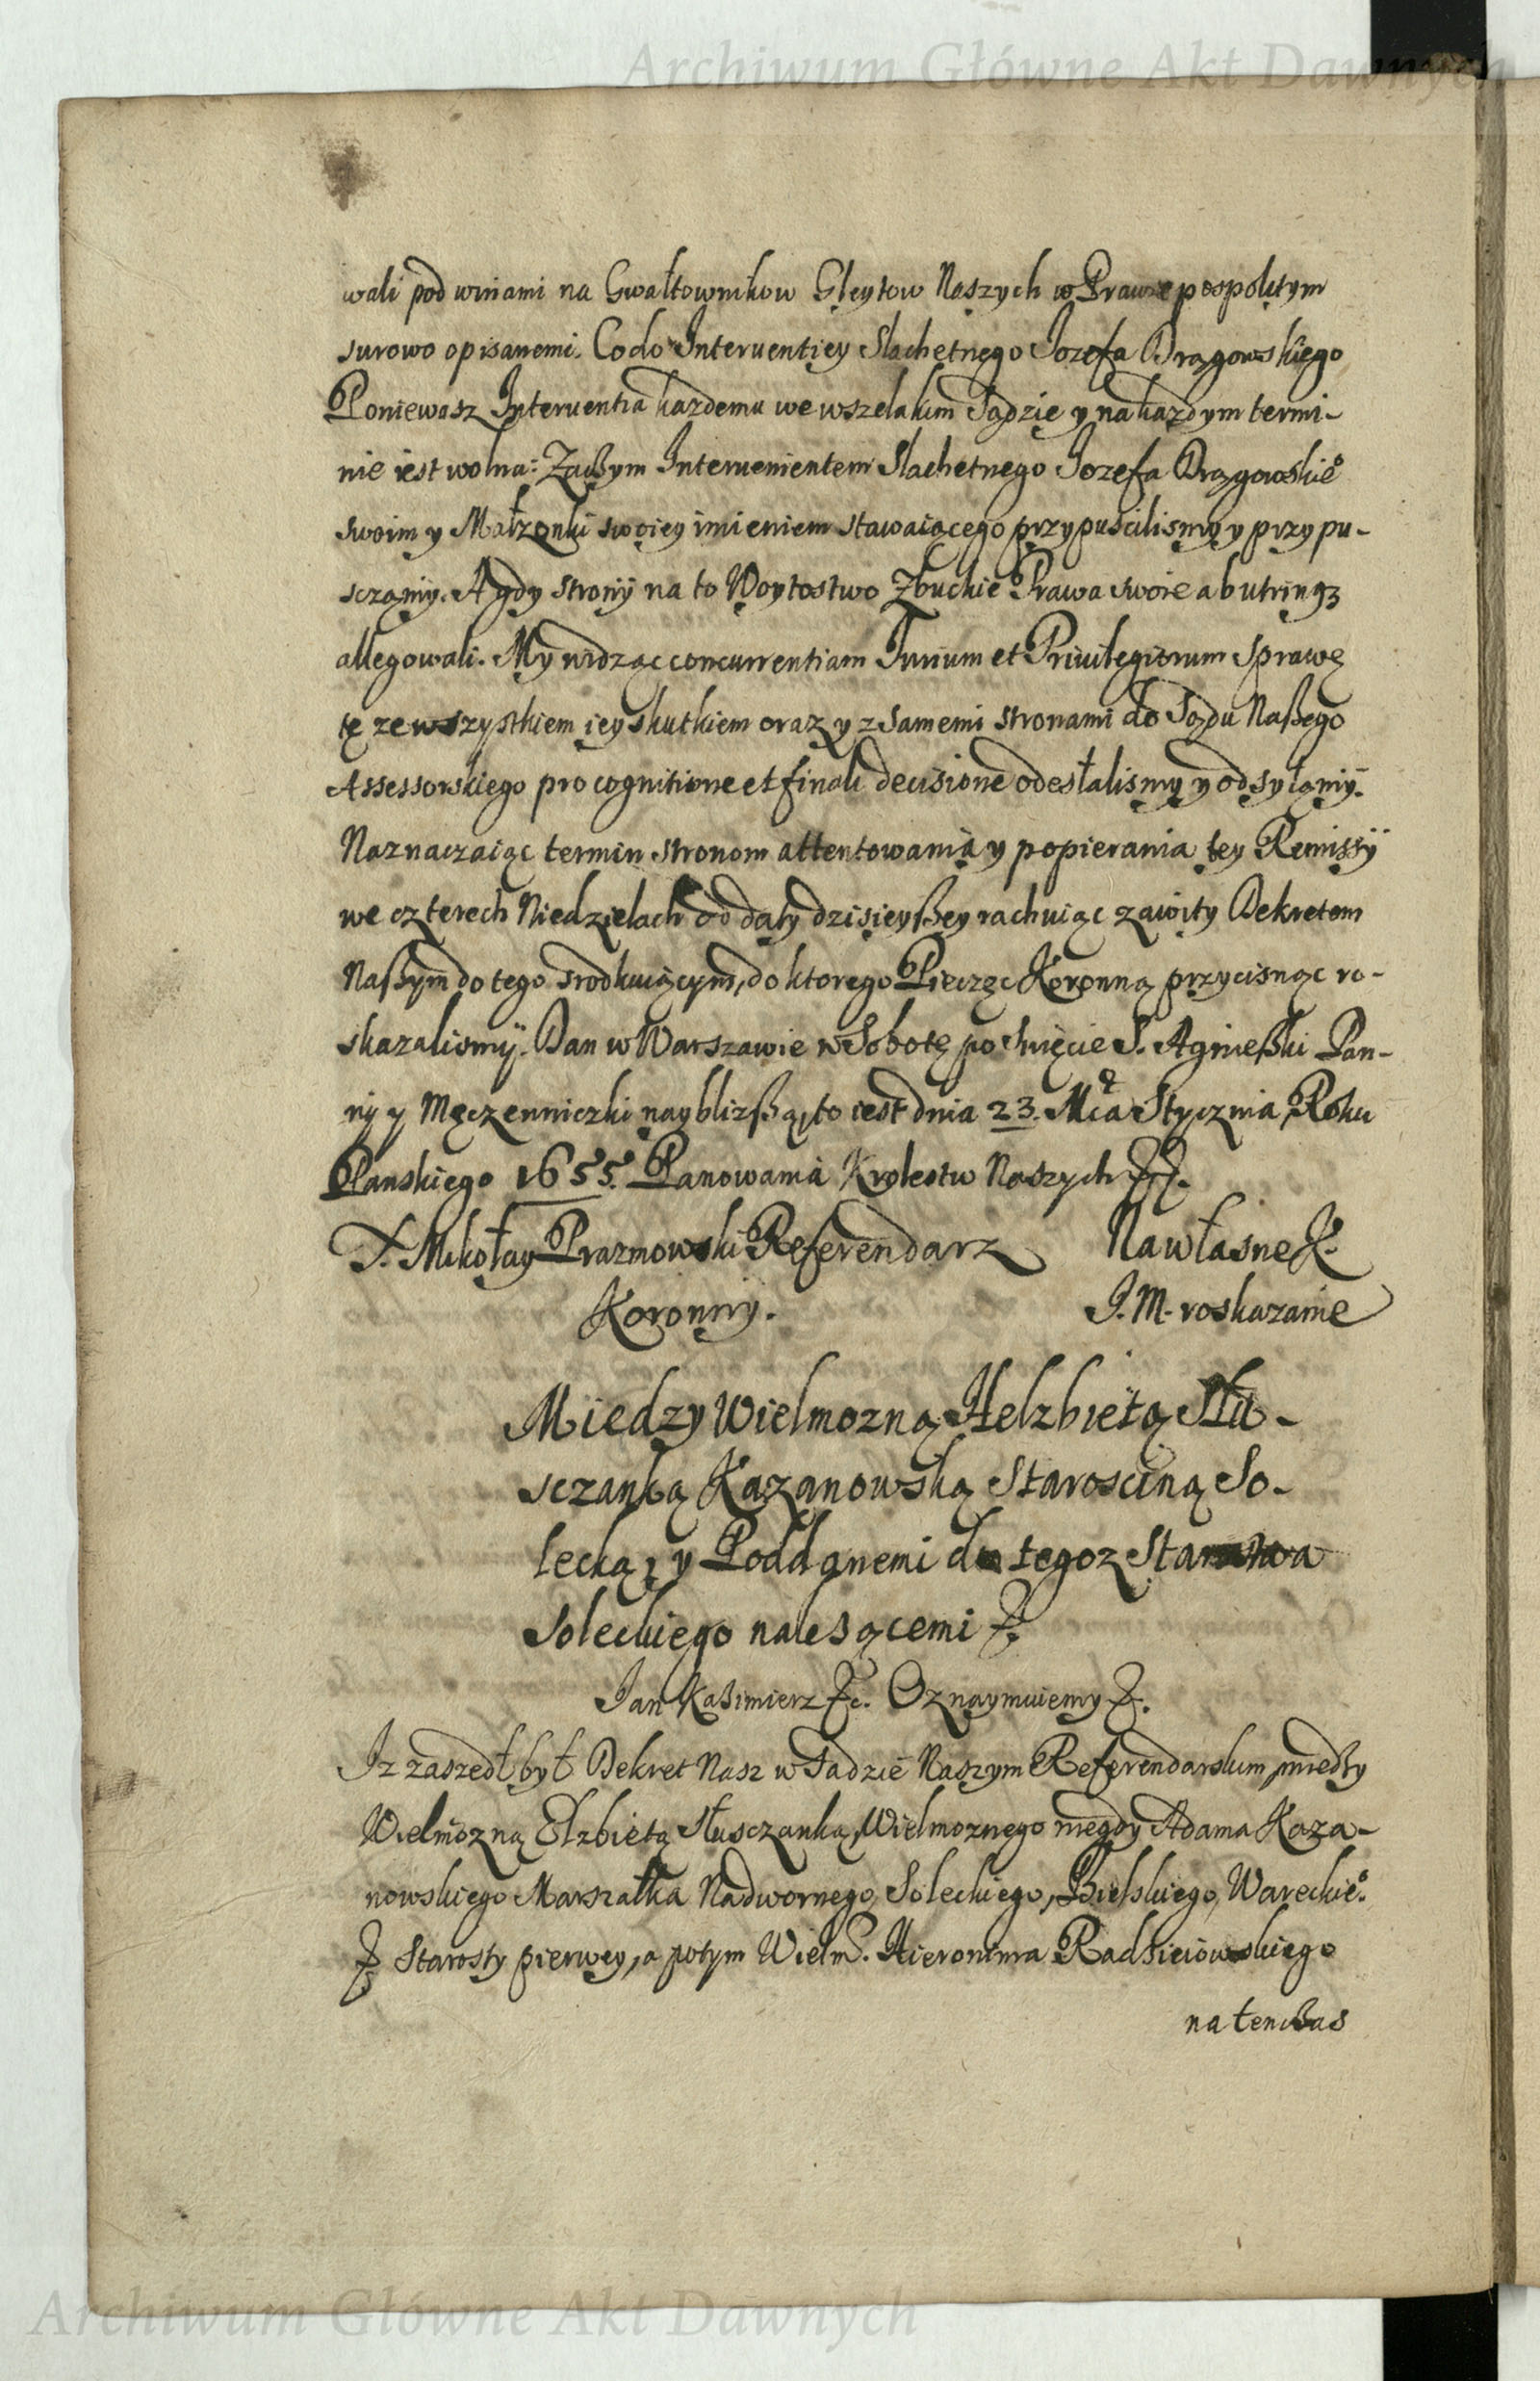 Archiwum Główne Akt Dawnych
wali pod winami na Gwałtownikow Gleytow Naszych w Prawie pospolitym
surowo opisanemi. Co do Interuentiey Slachetnego Jozefa Drągowskiego
Poniewasz Interuentia kazdemu we wszelakim Sądzie y na kazdym termi-
nie iest wolna: Zaßym Interuenientem Slachetnego Jozefa Drągowskie°
swoim y Małzonki swoiey imieniem stawaiącego przypuscilismy y przypu-
sczamy. A gdy strony na to Woytostwo Zbuckie Prawa swoie ab utrinqȝ
allegowali. My widząc concurrentiam Jurium et Priuilegiorum Sprawę
tę ze wszystkiem iey skutkiem oraz y z Samemi stronami do Sądu Naßego
Assessorskiego pro cognitione et finali decisione odesłalismy y odsyłamy.
Naznaczaiąc termin stronom attentowania y popierania tey Remissÿ
we czterech Niedzielach od daty dzisieyßey rachuiąc zawity Dekretem
Naßym do tego srodkuiącym, do ktorego Pieczęc Koronną przycisnąc ro-
skazalismÿ. Dan w Warszawie w Sobotę po Swięcie S. Agnießki Pan-
ny y Męczenniczki nayblizßą, to iest dnia 23. Mca Stycznia, Roku
Panskiego 1655. Panowania Krolestw Naszych &&.
X. Mikołay Prazmowski Referendarz Na własne K.
Koronny. J. M. roskazanie
Miedzy Wielmozną Helzbietą Słu-
sczanką Kazanowską Staroscиną So-
lecką, y Poddanemi do tegoz Starostwa
Soleckiego nalesącemi &.
Jan Kasimierz &c. Oznaymuiemy &.
Iz zaszedł był Dekret Nasz w Sadzie Naszym Referendarskim, miedsy
Wielmozną Elzbietą Słusczanką, Wielmoznego niegdy Adama Kaza-
nowskiego Marszałka Nadwornego, Soleckiego, Bielskiego, Wareckie°.
& Starosty pierwey, a potym Wielm. Hieronima Radsieiowskiego
na tenczas
Archiwum Główne Akt Dawnych